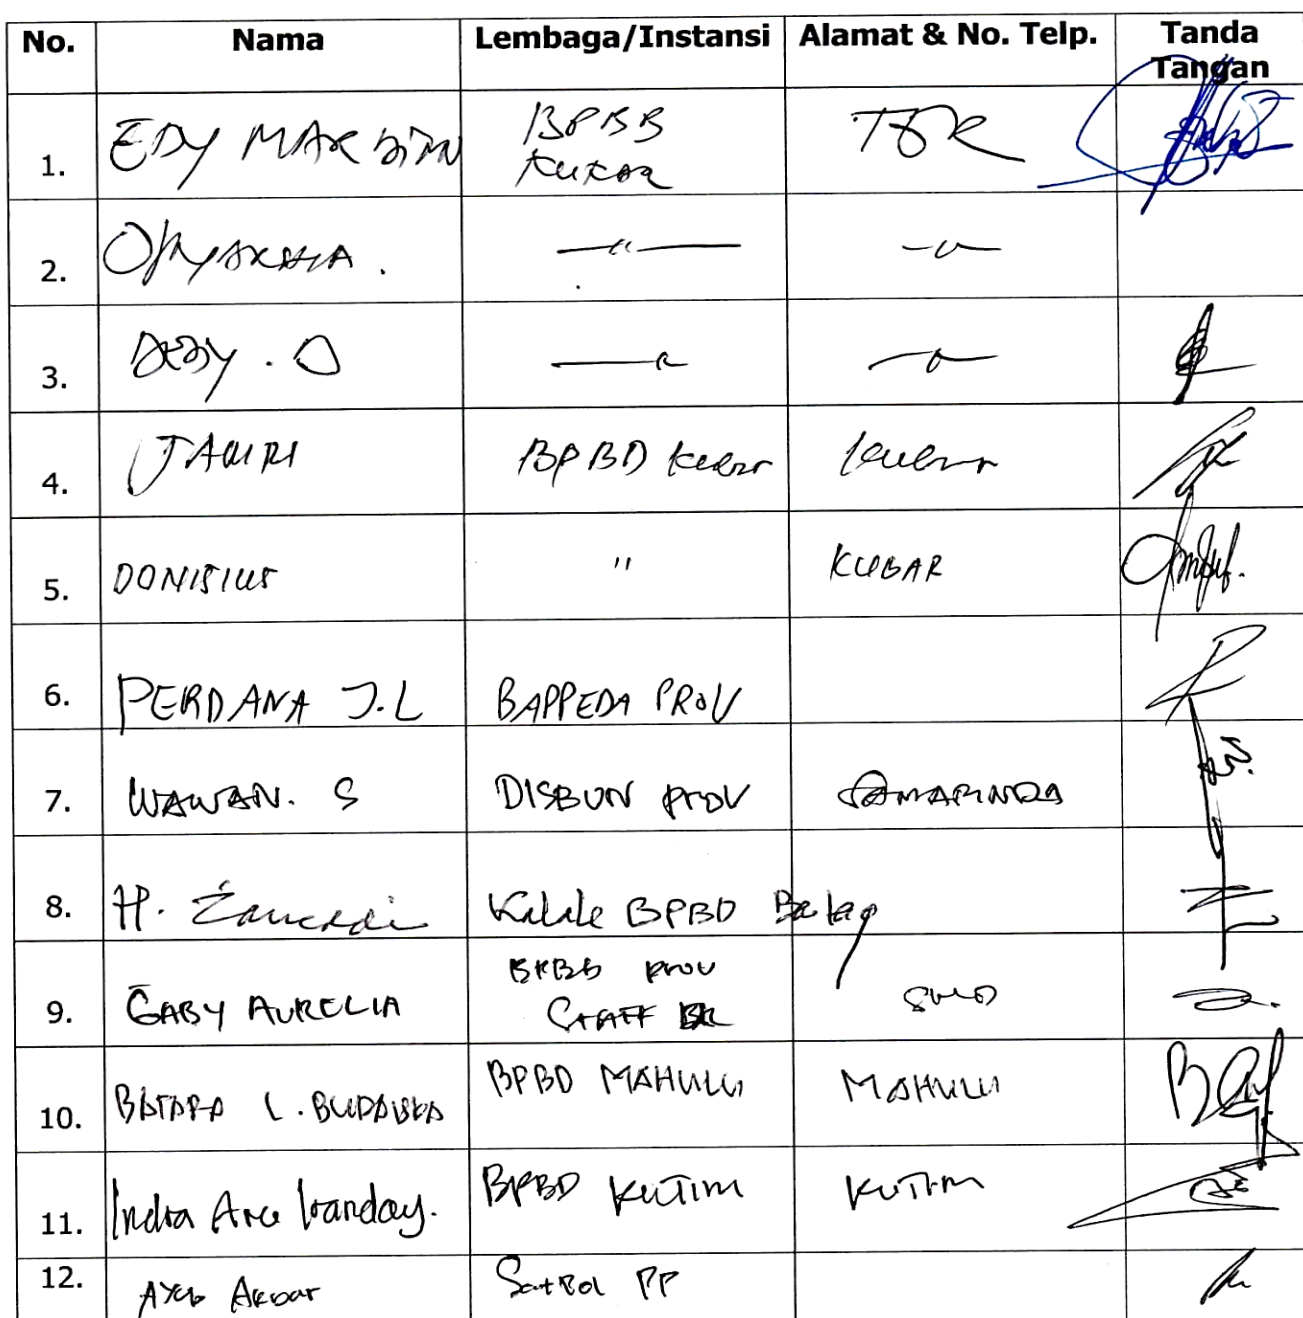 No. Nama Lembaga/Instansi Alamat & No. Telp. Tanda
Tangan
1. EDY MARDIAN BPBD TGR
Kukar
2. —〃— —〃—
3. DEDY . O —〃— —〃—
4. JAURI BPBD Kubar Kubar
5. DONISIUS " KUBAR
6. PERDANA J.L BAPPEDA PROV
7. WAWAN. S DISBUN PROV SAMARINDA
8. H. BPBD
9. GABY AURELIA BPBD PROV
STAFF
10. BATARA L. BPBD MAHULU MAHULU
11. Indra Arie BPBD KUTIM KUTIM
12. Ayub Akbar Satpol PP